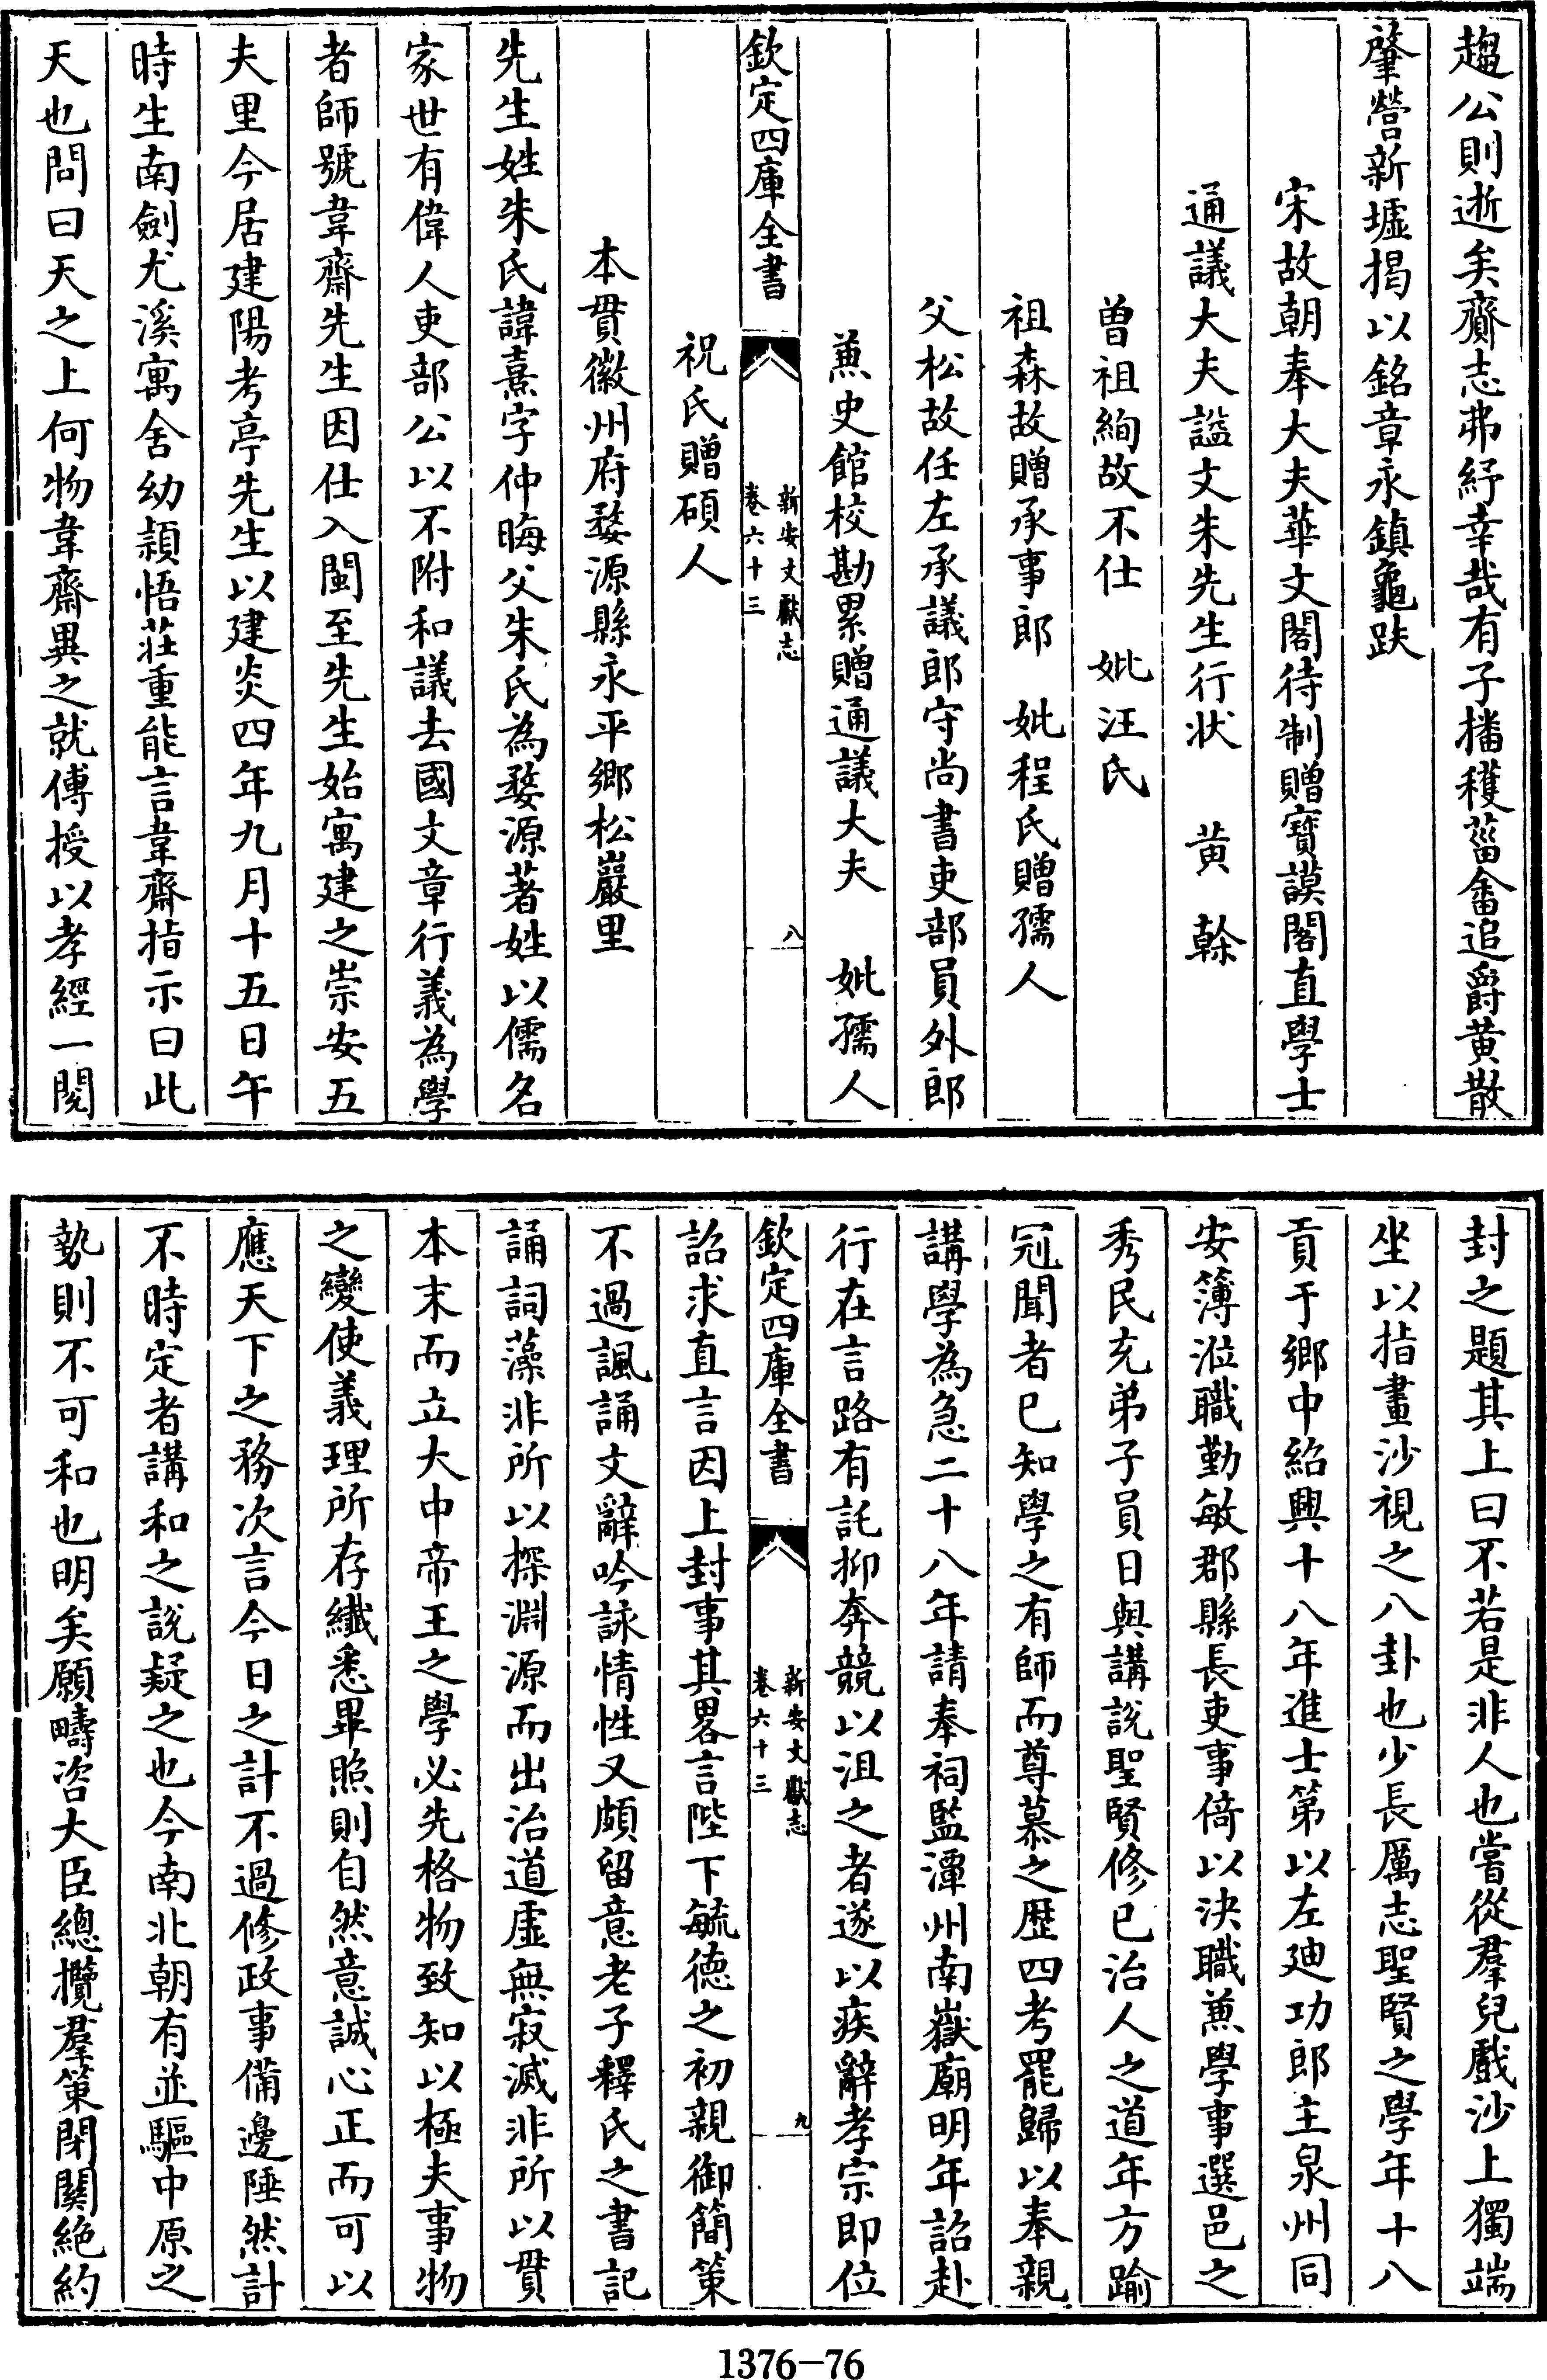 趨公則逝矣齎志弗紓幸哉有子播穫菑畬追爵黄散
肇營新墟揭以銘章永鎮龜趺
宋故朝奉大夫華文閣待制贈寶謨閣直學士
通議大夫諡文朱先生行状　黄　榦
曽祖絢故不仕　妣汪氏
祖森故贈承事郎　妣程氏贈孺人
父松故任左承議郎守尚書吏部員外郎
兼史館校勘累贈通議大夫　妣孺人
欽定四庫全書
新安文獻志
卷六十三
八
祝氏贈碩人
本貫徽州府婺源縣永平郷松巖里
先生姓朱氏諱熹字仲晦父朱氏為婺源著姓以儒名
家世有偉人吏部公以不附和議去國文章行義為學
者師號韋齋先生因仕入閩至先生始寓建之崇安五
夫里今居建陽考亭先生以建炎四年九月十五日午
時生南劍尤溪寓舍幼穎悟莊重能言韋齋指示曰此
天也問曰天之上何物韋齋異之就傅授以孝經一閲
封之題其上曰不若是非人也嘗從羣兒戲沙上獨端
坐以指畫沙視之八卦也少長厲志聖賢之學年十八
貢于鄉中紹興十八年進士第以左廸功郎主泉州同
安簿涖職勤敏郡縣長吏事倚以決職兼學事選邑之
秀民充弟子員日與講說聖賢修已治人之道年方踰
冠聞者已知學之有師而尊慕之歴四考罷歸以奉親
講學為急二十八年請奉祠監潭州南嶽廟明年詔赴
行在言路有託抑奔競以沮之者遂以疾辭孝宗即位
欽定四庫全書
新安文獻志
卷六十三
九
詔求直言因上封事其畧言陛下毓德之初親御簡策
不過諷誦文辭吟詠情性又頗留意老子釋氏之書記
誦詞藻非所以探淵源而出治道虛無寂滅非所以貫
本末而立大中帝王之學必先格物致知以極夫事物
之變使義理所存纎悉畢照則自然意誠心正而可以
應天下之務次言今日之計不過修政事備邊陲然計
不時定者講和之說疑之也今南北朝有並驅中原之
勢則不可和也明矣願疇咨大臣總攬羣策閉關絶約
1376-76